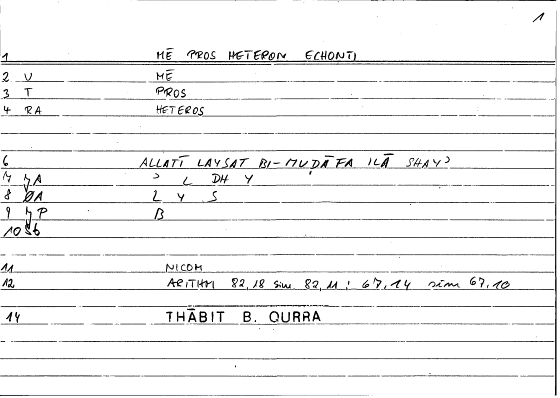 1
1 MĒ PROS HETERON ECHONTI
2 U MĒ
3 T PROS
4 RA HETEROS
6 ALLATĪ LAYSAT BI-MUḌĀFA ILĀ SHAYʾ
7 ʾ L DH Y
8 ØA L Y S
9 B
10
11 NICOM
12 ARITHM 82,18 sim 82,11; 67,14 sim 67,10
14 THĀBIT B. QURRA